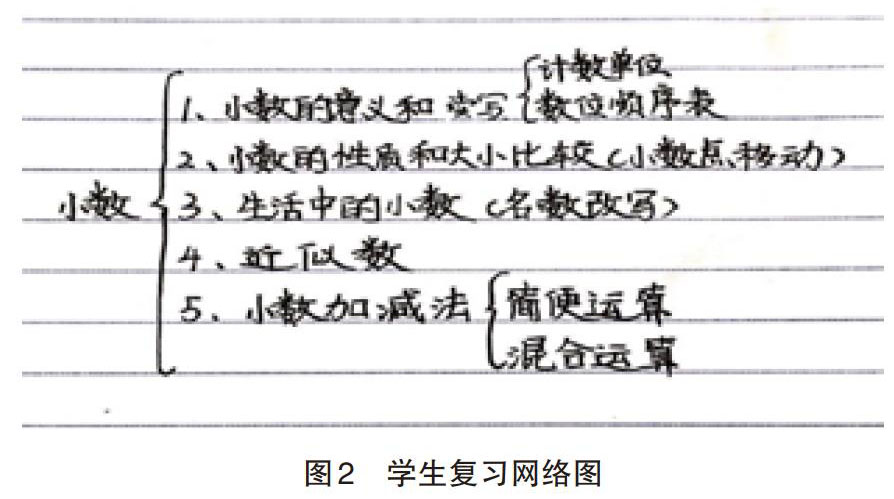 小数
1、小数的意义和读写
计数单位
数位顺序表
2、小数的性质和大小比较(小数点移动)
3、生活中的小数(名数改写)
4、近似数
5、小数加减法
简便运算
混合运算
图2 学生复习网络图